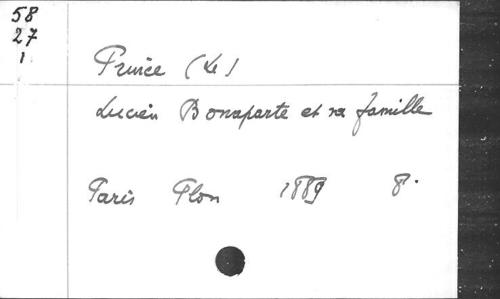 58
27
1
Prince (Le)
Lucien Bonaparte et sa famille
Paris Plon 1889 8°